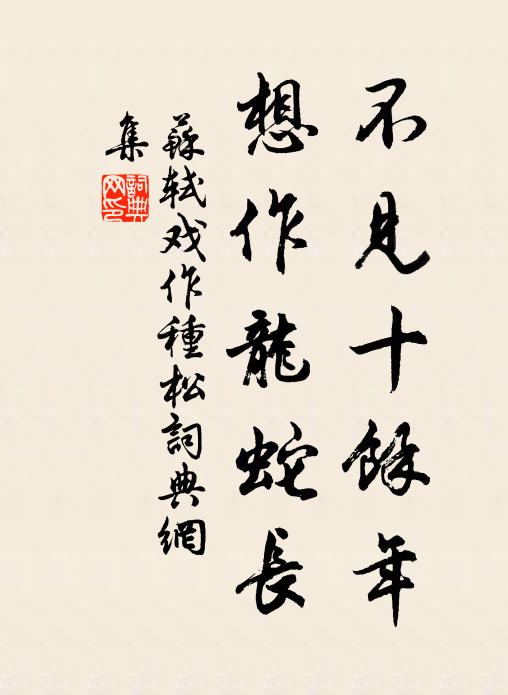 不見十餘年
想作龍蛇長
蘇軾戏作種松詞典網
集
詞典網印